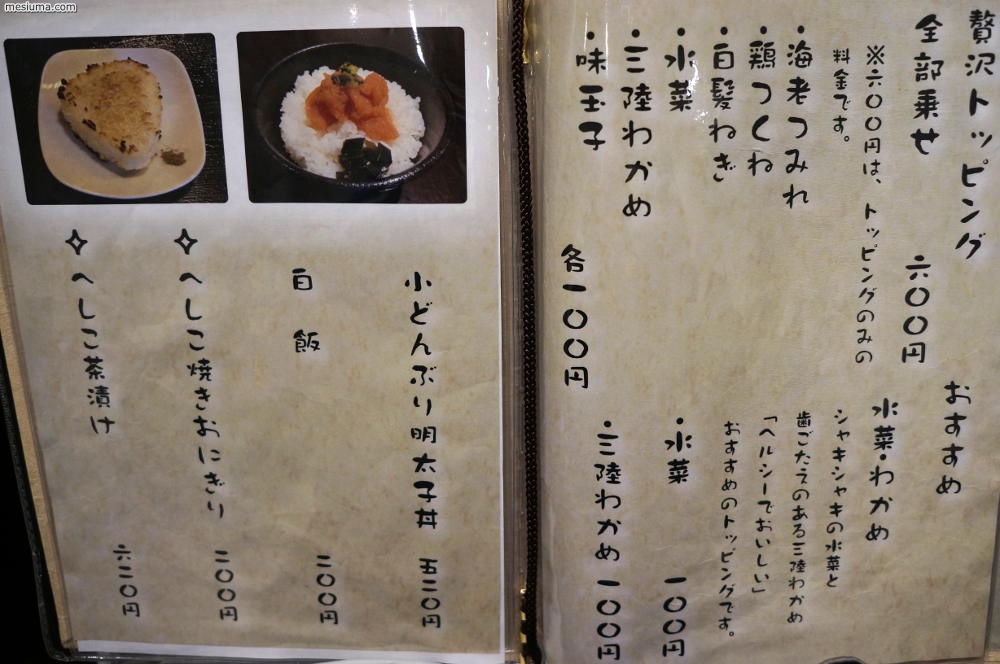 mesiuma.com
贅沢トッピング
全部乗せ 六〇〇円
※六〇〇円は、トッピングのみの
料金です。
・海老つみれ
・鶏つくね
・白髪ねぎ
・水菜
・三陸わかめ
・味玉子
各一〇〇円
おすすめ
水菜・わかめ
シャキシャキの水菜と
歯ごたえのある三陸わかめ
「ヘルシーでおいしい」
おすすめのトッピングです。
・水菜 一〇〇円
・三陸わかめ 一〇〇円
小どんぶり明太子丼 五二〇円
白飯 二〇〇円
✧へしこ焼きおにぎり 二〇〇円
✧へしこ茶漬け 六二〇円